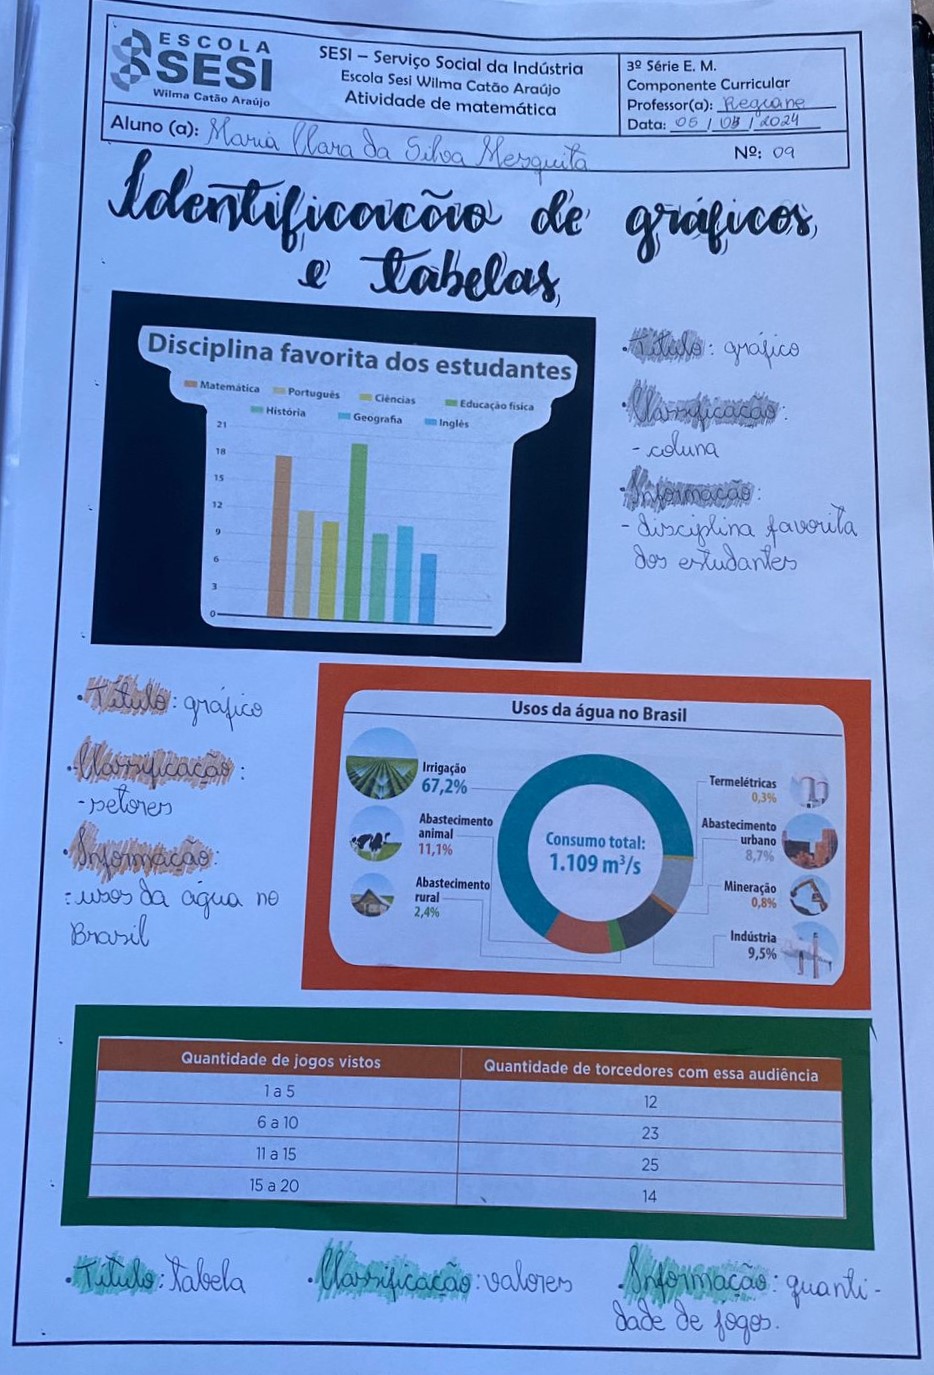 ESCOLA
SESI
Wilma Catão Araújo
SESI – Serviço Social da Indústria
Escola Sesi Wilma Catão Araújo
Atividade de matemática
3º Série E. M.
Componente Curricular
Professor(a): Regiane
Data: 06 / 03 / 2024
Aluno (a): Maria Clara da Silva Mesquita
Nº: 09
Identificacão de gráficos
e tabelas
Disciplina favorita dos estudantes
Matemática Português Ciências Educação física
História Geografia Inglês
21
18
15
12
9
6
3
0
• Título: gráfico
• Classificação:
- coluna
• Informação:
- disciplina favorita
dos estudantes
• Título: gráfico
• Classificação:
- setores
• Informação:
- usos da água no
Brasil
Usos da água no Brasil
Irrigação
67,2%
Abastecimento
animal
11,1%
Abastecimento
rural
2,4%
Consumo total:
1.109 m³/s
Termelétricas
0,3%
Abastecimento
urbano
8,7%
Mineração
0,8%
Indústria
9,5%
Quantidade de jogos vistos Quantidade de torcedores com essa audiência
1 a 5 12
6 a 10 23
11 a 15 25
15 a 20 14
• Título: tabela • Classificação: valores • Informação: quanti-
dade de jogos.